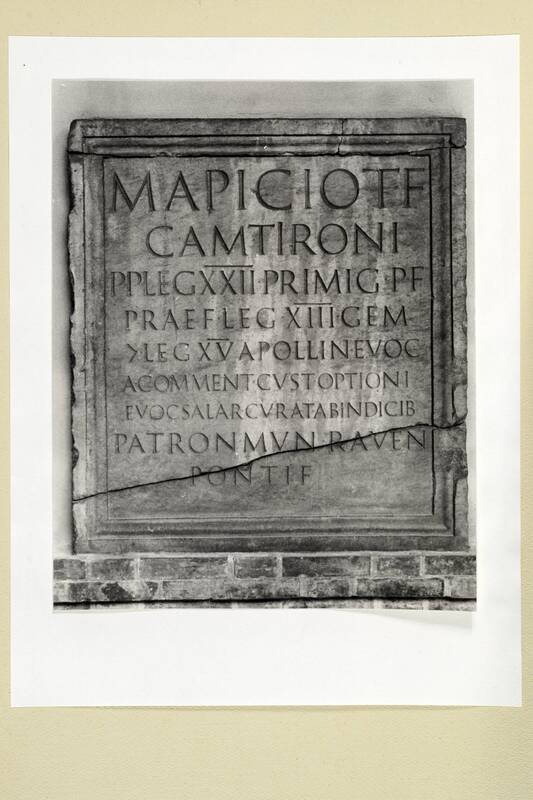 MAPICIOTF
CAMTIRONI
PPLEGXXII PRIMIG PF
PRAEFLEG XIIIGEM
7LEG XV APOLLINEVOC
ACOMMENT CVSTOPTIONI
EVOCSALARCVRATABINDICIB
PATRONMVN RAVEN
PONTIF